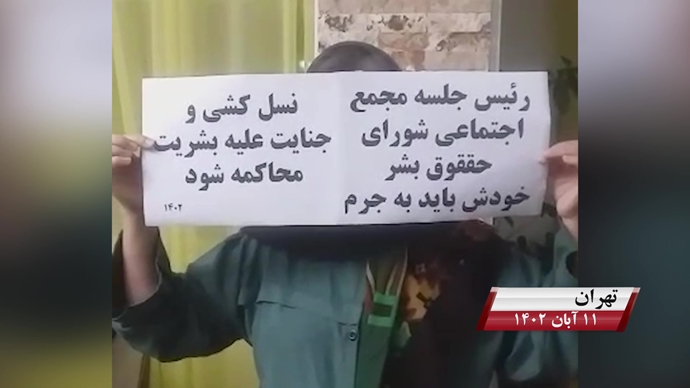 رئیس جلسه مجمع
اجتماعی شورای
حققوق بشر
خودش باید به جرم
نسل کشی و
جنایت علیه بشریت
محاکمه شود
۱۴۰۲
تهران
۱۱ آبان ۱۴۰۲